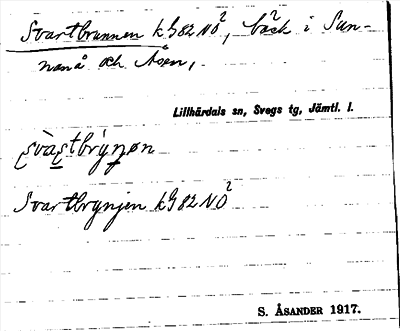 Svartbrunnen k G 82 NO², bäck i Sun-
nanå och Åsen,
Lillhärdals sn, Svegs tg, Jämtl. l.
Svartbrynjen k G 82 NO²
S. ÅSANDER 1917.